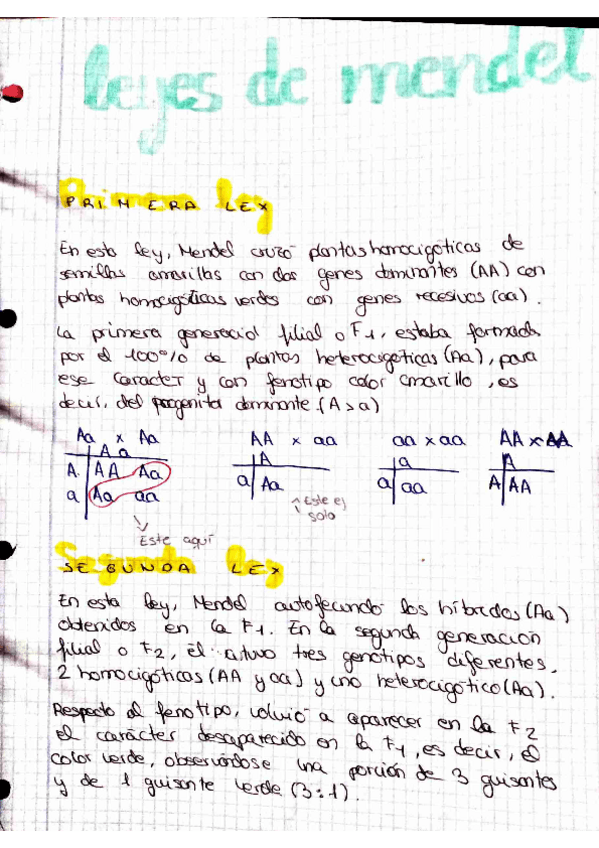 leyes de mendel
Primera ley
PRIMERA LEY
En esta ley, Mendel cruzó plantas homocigóticas de
semillas amarillas con dos genes dominantes (AA) con
plantas homocigóticas verdes con genes recesivos (aa).
La primera generació filial o F1, estaba formada
por el 100% de plantas heterocigóticas (Aa), para
ese caracter y con fenotipo color amarillo, es
decir, del progenitor dominante (A>a)
Aa x Aa
A a
A AA Aa
a Aa aa
Este aquí
AA x aa
A
a Aa
Este es
solo
aa x aa
a
a aa
AA x AA
A
A AA
Segunda ley
SEGUNDA LEY
En esta ley, Mendel autofecundo los híbridos (Aa)
obtenidos en la F1. En la segunda generación
filial o F2, él obtuvo tres genotipos diferentes,
2 homocigóticas (AA y aa) y uno heterocigótico (Aa).
Respecto al fenotipo, volvió a aparecer en la F2
el carácter desaparecido en la F1, es decir, el
color verde, observándose una porción de 3 guisantes
y de 1 guisante verde (3:1).